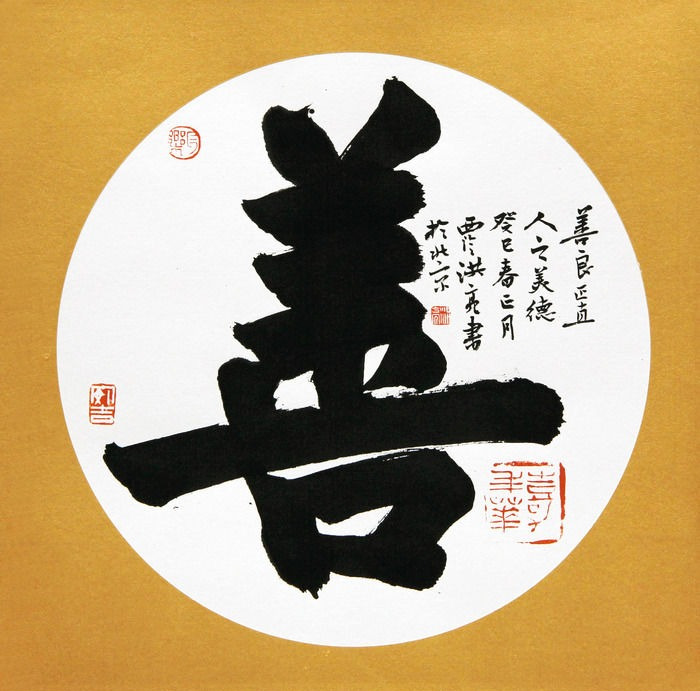 善
善良正直
人之美德
癸巳春正月
贾洪亮书
于北京